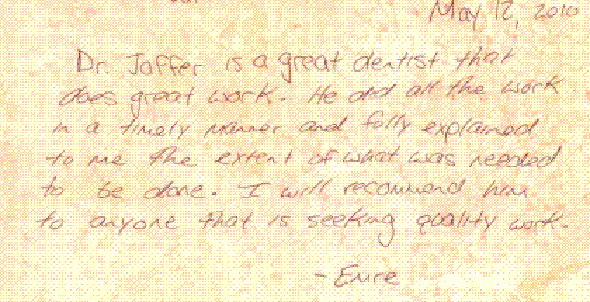 May 12, 2010
Dr. Jaffer is a great dentist that
does great work. He did all the work
in a timely manner and fully explained
to me the extent of what was needed
to be done. I will recommend him
to anyone that is seeking quality work.
- Emre